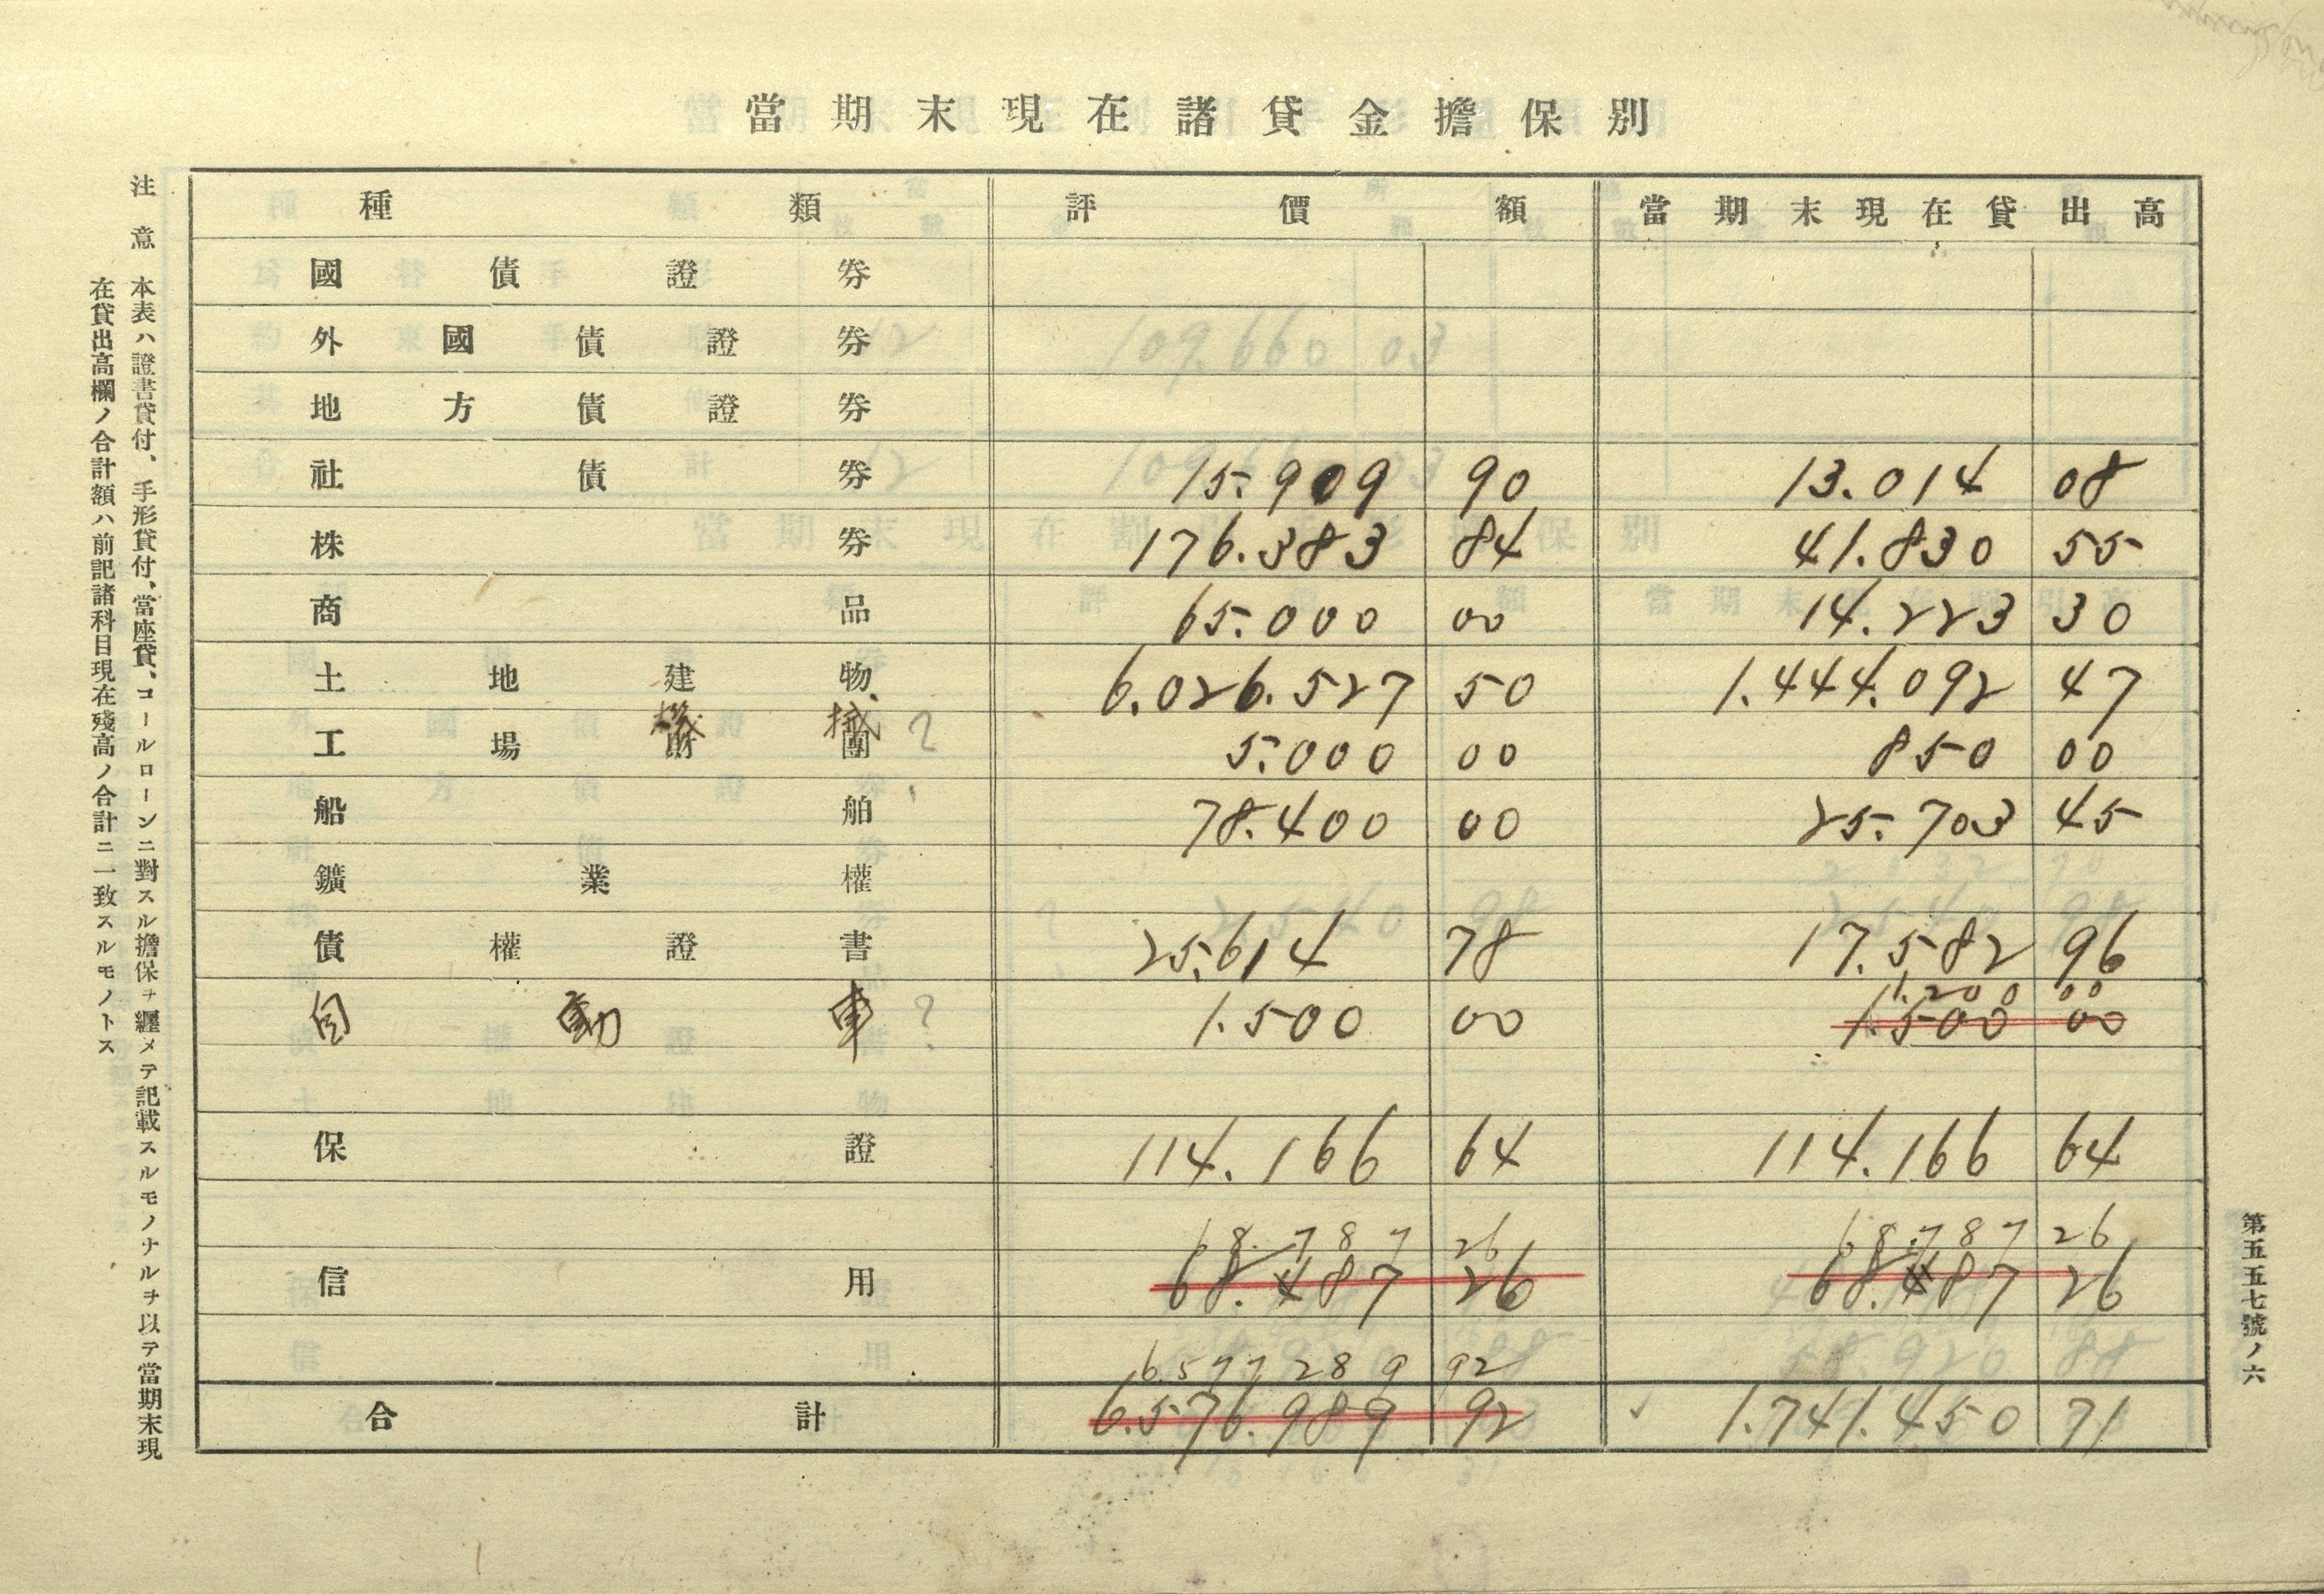 當期末現在諸貸金擔保別
種類 評價額 當期末現在貸出高
國債證券
外國債證券
地方債證券
社債券 15.909 90 13.014 08
株券 176.383 84 41.830 55
商品 65.000 00 14.223 30
土地建物 6.026.527 50 1.444.092 47
機械 ?
工場財團 5.000 00 850 00
船舶 78.400 00 25.703 45
鑛業權
債權證書 25.614 78 17.582 96
1.200 00
自動車 ? 1.500 00 1.500 00
保證 114.166 64 114.166 64
68.787 26 68.787 26
信用 68.487 26 68.487 26
6.577 289 92
合計 6.576.989 92 1.741.450 71
注意 本表ハ證書貸付、手形貸付、當座貸、コールローンニ對スル擔保ヲ纒メテ記載スルモノナルヲ以テ當期末現
在貸出高欄ノ合計額ハ前記諸科目現在殘高ノ合計ニ一致スルモノトス
第五五七號ノ六